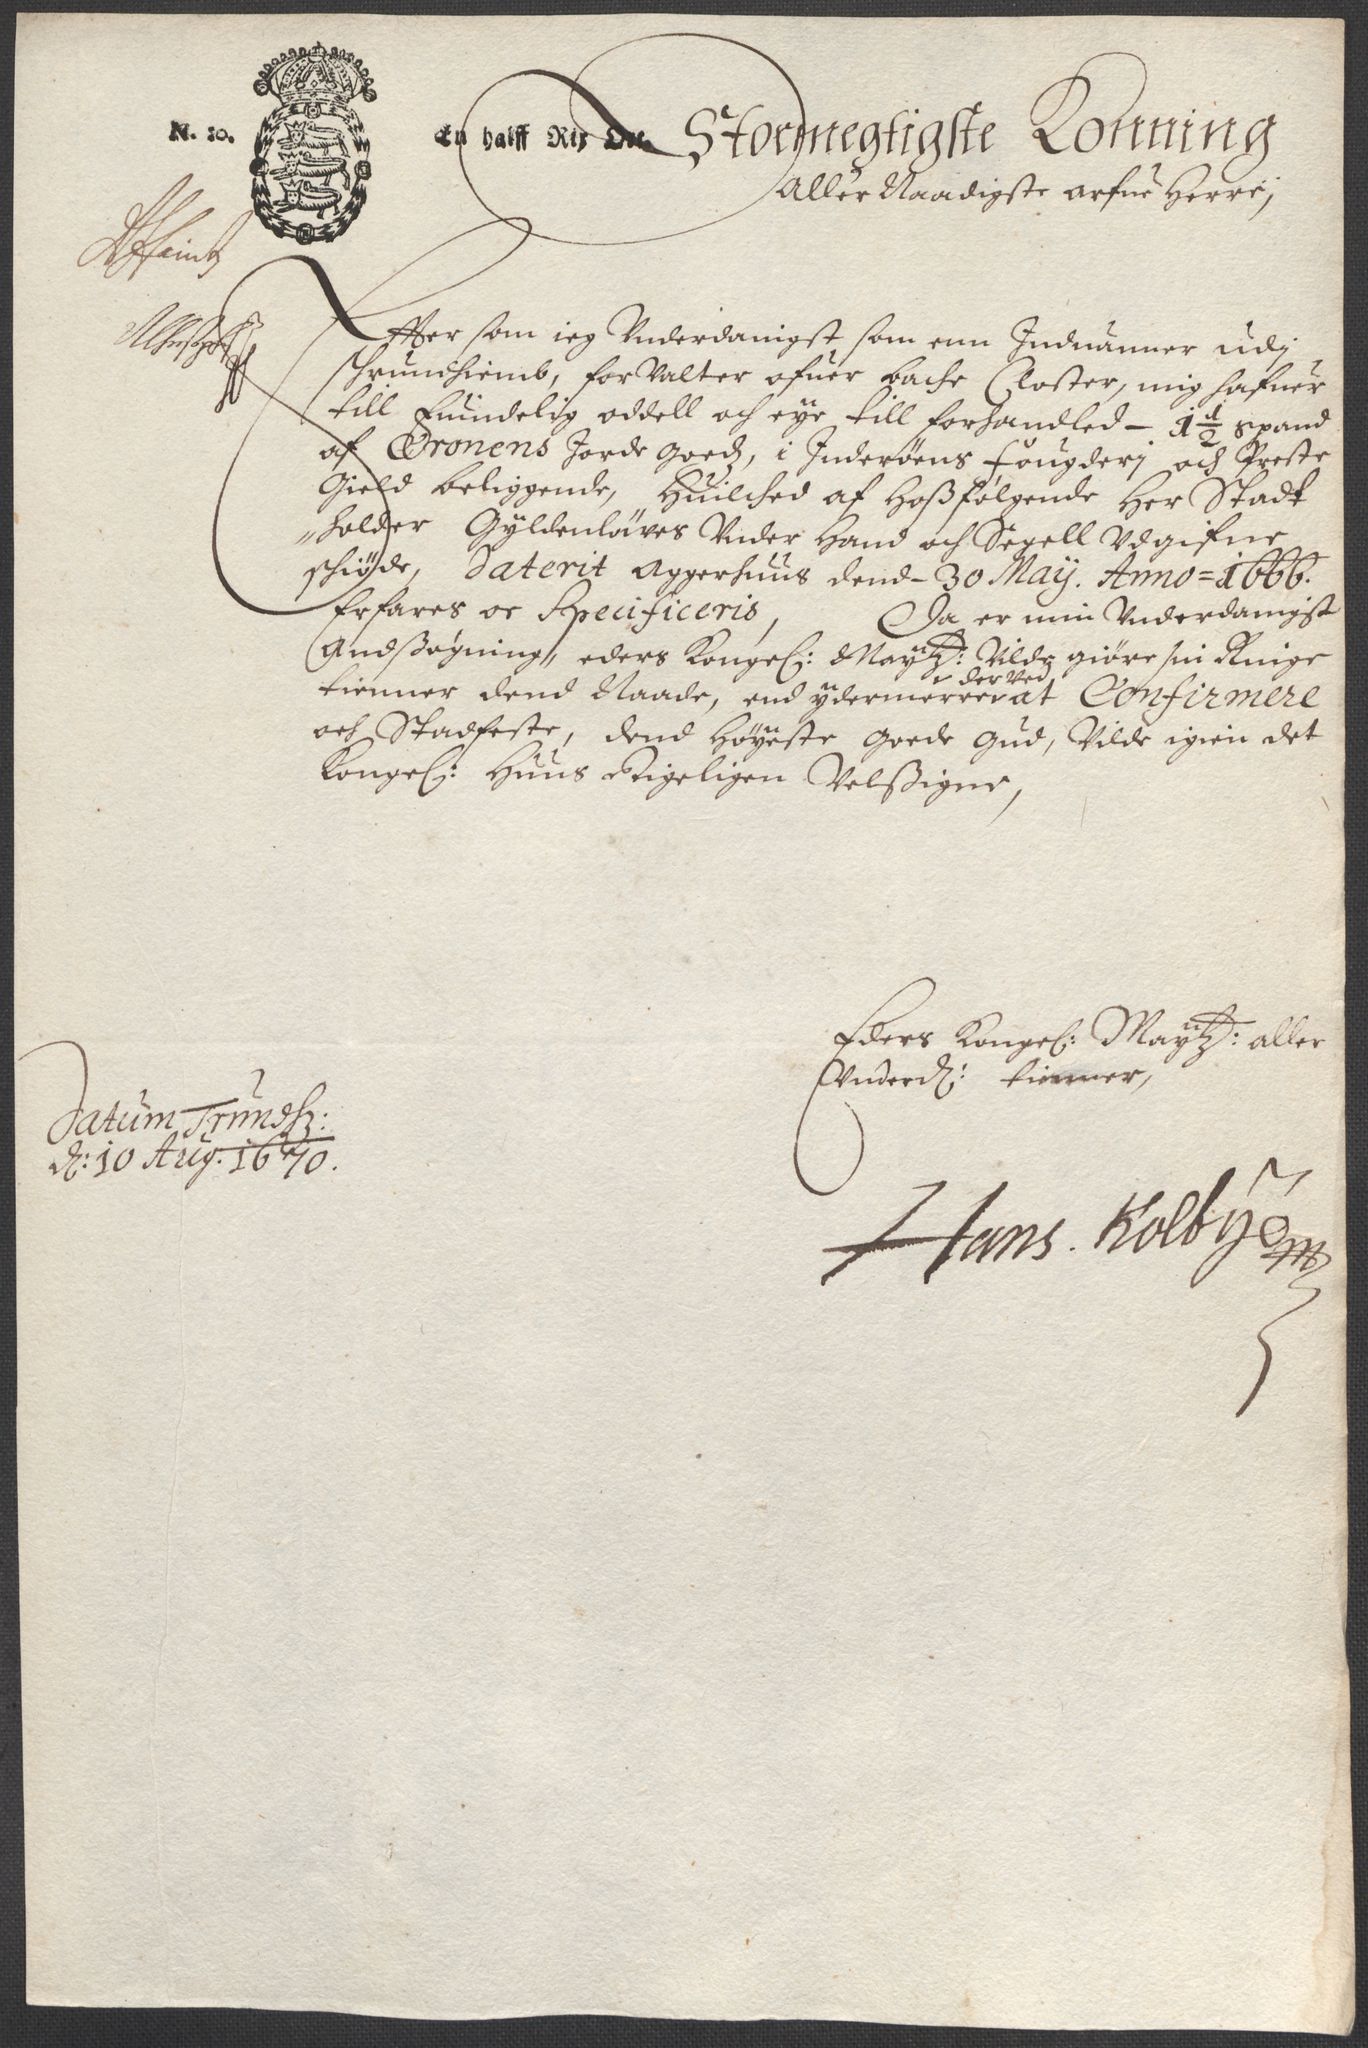 N. 20. En halff Rix Ort.
Stormegtigste Konning
Aller Naadigste arfue Herre,
Effter som ieg Vnderdanigst som enn Induaaner udj
thrundhiemb, forValter ofuer bache Closter, mig hafuer
till Euindelig oddell och eye till forhandled - 1 1/2 spand
af Cronens Jorde goedz, i Inderøens fougderj och Preste
Gield beliggende, Huilched af Hoßfølgende Her Stadt
„holder Gyldenløves Vnder Hand och Segell Vdgifne
schiøde, Daterit Aggerhuus dend - 30 May. Anno = 1666.
Erfares oc Specificeris, Da er min Vnderdanigst
Andßøgning, eders Kongel: Maytz: Vilde giøre sin Ringe
tienner dend Naade, end ydermeere derved at Confirmere
och Stadfeste, dend Høyeste goede Gud, Vilde igien det
Kongel: Huus Rigeligen Velßigne,
Eders Kongel: Maytz: aller
Vnderd: tienner,
Datum Trundh:
d: 10 Aug: 1670.
Hans. Kolbÿ